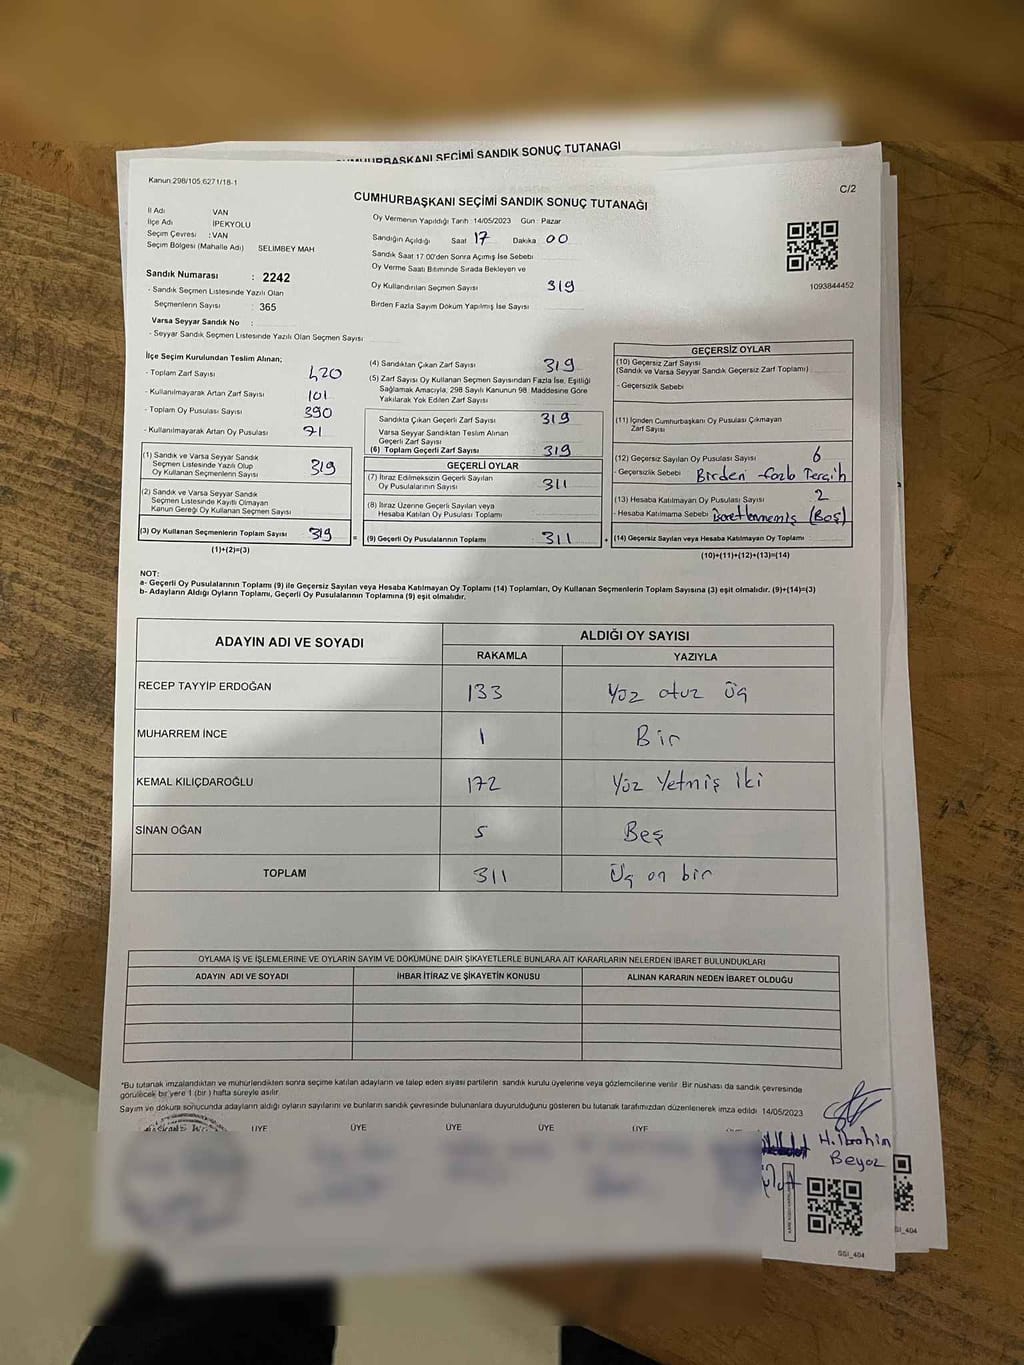 CUMHURBAŞKANI SEÇİMİ SANDIK SONUÇ TUTANAĞI
Kanun:298/105,6271/18-1
C/2
CUMHURBAŞKANI SEÇİMİ SANDIK SONUÇ TUTANAĞI
İl Adı VAN
İlçe Adı İPEKYOLU
Seçim Çevresi :VAN
Seçim Bölgesi (Mahalle Adı) SELIMBEY MAH
Oy Vermenin Yapıldığı Tarih :14/05/2023 Gün : Pazar
Sandığın Açıldığı Saat 17 Dakika 00
Sandık Saat 17:00'den Sonra Açımış İse Sebebi
Oy Verme Saati Bitiminde Sırada Bekleyen ve
Oy Kullandırılan Seçmen Sayısı 319
Birden Fazla Sayım Döküm Yapılmış İse Sayısı
1093844452
Sandık Numarası : 2242
- Sandık Seçmen Listesinde Yazılı Olan
Seçmenlerin Sayısı : 365
Varsa Seyyar Sandık No :
- Seyyar Sandık Seçmen Listesinde Yazılı Olan Seçmen Sayısı
İlçe Seçim Kurulundan Teslim Alınan;
- Toplam Zarf Sayısı 420
- Kullanılmayarak Artan Zarf Sayısı 101
- Toplam Oy Pusulası Sayısı 390
- Kullanılmayarak Artan Oy Pusulası 71
(1) Sandık ve Varsa Seyyar Sandık
Seçmen Listesinde Yazılı Olup
Oy Kullanan Seçmenlerin Sayısı 319
(2) Sandık ve Varsa Seyyar Sandık
Seçmen Listesinde Kayıtlı Olmayan
Kanun Gereği Oy Kullanan Seçmen Sayısı
(3) Oy Kullanan Seçmenlerin Toplam Sayısı 319 =
(1)+(2)=(3)
(4) Sandıktan Çıkan Zarf Sayısı 319
(5) Zarf Sayısı Oy Kullanan Seçmen Sayısından Fazla İse, Eşitliği
Sağlamak Amacıyla, 298 Sayılı Kanunun 98. Maddesine Göre
Yakılarak Yok Edilen Zarf Sayısı
Sandıkta Çıkan Geçerli Zarf Sayısı 319
Varsa Seyyar Sandıktan Teslim Alınan
Geçerli Zarf Sayısı
(6) Toplam Geçerli Zarf Sayısı 319
GEÇERLİ OYLAR
(7) İtiraz Edilmeksizin Geçerli Sayılan
Oy Pusulalarının Sayısı 311
(8) İtiraz Üzerine Geçerli Sayılan veya
Hesaba Katılan Oy Pusulaları Toplamı
(9) Geçerli Oy Pusulalarının Toplamı 311 +
GEÇERSİZ OYLAR
(10) Geçersiz Zarf Sayısı
(Sandık ve Varsa Seyyar Sandık Geçersiz Zarf Toplamı)
- Geçersizlik Sebebi
(11) İçinden Cumhurbaşkanı Oy Pusulası Çıkmayan
Zarf Sayısı
(12) Geçersiz Sayılan Oy Pusulası Sayısı 6
- Geçersizlik Sebebi Birden fazla Tercih
(13) Hesaba Katılmayan Oy Pusulası Sayısı 2
- Hesaba Katılmama Sebebi İşaretlenmemiş (Boş)
(14) Geçersiz Sayılan veya Hesaba Katılmayan Oy Toplamı
(10)+(11)+(12)+(13)=(14)
NOT:
a- Geçerli Oy Pusulalarının Toplamı (9) ile Geçersiz Sayılan veya Hesaba Katılmayan Oy Toplamı (14) Toplamları, Oy Kullanan Seçmenlerin Toplam Sayısına (3) eşit olmalıdır. (9)+(14)=(3)
b- Adayların Aldığı Oyların Toplamı, Geçerli Oy Pusulalarının Toplamına (9) eşit olmalıdır.
ADAYIN ADI VE SOYADI ALDIĞI OY SAYISI
RAKAMLA YAZIYLA
RECEP TAYYİP ERDOĞAN 133 Yüz otuz üç
MUHARREM İNCE 1 Bir
KEMAL KILIÇDAROĞLU 172 Yüz Yetmiş iki
SİNAN OĞAN 5 Beş
TOPLAM 311 Üç on bir
OYLAMA İŞ VE İŞLEMLERİNE VE OYLARIN SAYIM VE DÖKÜMÜNE DAİR ŞİKAYETLERLE BUNLARA AİT KARARLARIN NELERDEN İBARET BULUNDUKLARI
ADAYIN ADI VE SOYADI İHBAR İTİRAZ VE ŞİKAYETİN KONUSU ALINAN KARARIN NEDEN İBARET OLDUĞU
*Bu tutanak imzalandıktan ve mühürlendikten sonra seçime katılan adayların ve talep eden siyasi partilerin sandık kurulu üyelerine veya gözlemcilerine verilir. Bir nüshası da sandık çevresinde
görülecek bir yere 1 (bir) hafta süreyle asılır.
Sayım ve döküm sonucunda adayların aldığı oyların sayılarını ve bunların sandık çevresinde bulunanlara duyurulduğunu gösteren bu tutanak tarafımızdan düzenlenerek imza edildi. 14/05/2023
ÜYE ÜYE ÜYE ÜYE ÜYE
H.İbrahim
Beyaz
GSI_404
SI_404